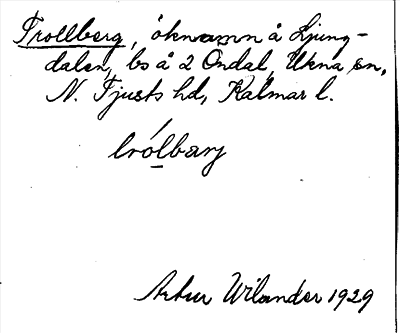 Trollberg, öknamn å Ljung-
dalen, bs å 2 Öndal, Ukna sn,
N. Tjusts hd, Kalmar l.
trólbærj
Artur Wilander 1929